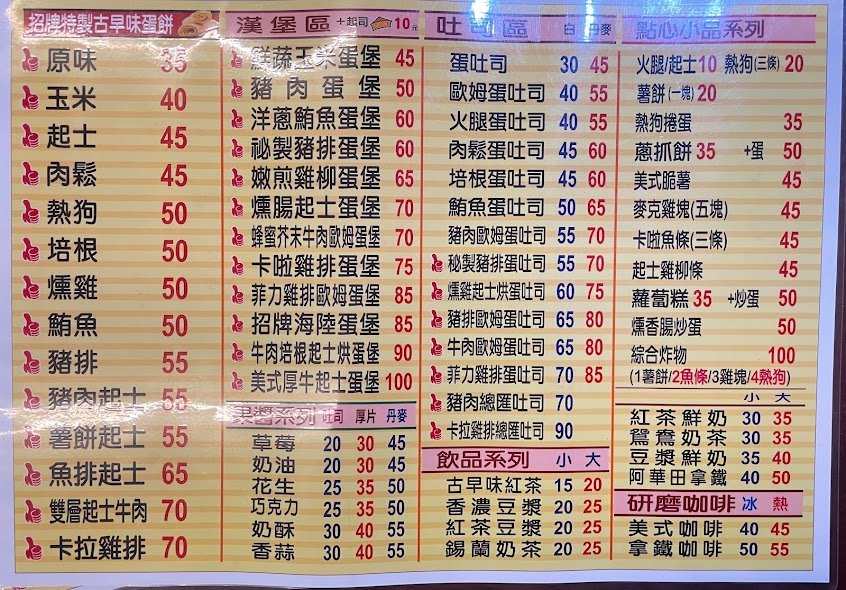 招牌特製古早味蛋餅
原味 35
玉米 40
起士 45
肉鬆 45
熱狗 50
培根 50
燻雞 50
鮪魚 50
豬排 55
豬肉起士 55
薯餅起士 55
魚排起士 65
雙層起士牛肉 70
卡拉雞排 70
漢堡區 +起司 10元
鮮蔬玉米蛋堡 45
豬肉蛋堡 50
洋蔥鮪魚蛋堡 60
祕製豬排蛋堡 60
嫩煎雞柳蛋堡 65
燻腸起士蛋堡 70
蜂蜜芥末牛肉歐姆蛋堡 70
卡啦雞排蛋堡 75
菲力雞排歐姆蛋堡 85
招牌海陸蛋堡 85
牛肉培根起士烘蛋堡 90
美式厚牛起士蛋堡 100
果醬系列 吐司 厚片 丹麥
草莓 20 30 45
奶油 20 30 45
花生 25 35 50
巧克力 25 35 50
奶酥 30 40 55
香蒜 30 40 55
吐司區 白 丹麥
蛋吐司 30 45
歐姆蛋吐司 40 55
火腿蛋吐司 40 55
肉鬆蛋吐司 45 60
培根蛋吐司 45 60
鮪魚蛋吐司 50 65
豬肉歐姆蛋吐司 55 70
秘製豬排蛋吐司 55 70
燻雞起士烘蛋吐司 60 75
豬排歐姆蛋吐司 65 80
牛肉歐姆蛋吐司 65 80
菲力雞排蛋吐司 70 85
豬肉總匯吐司 70
卡拉雞排總匯吐司 90
飲品系列 小 大
古早味紅茶 15 20
香濃豆漿 20 25
紅茶豆漿 20 25
錫蘭奶茶 20 25
點心小品系列
火腿/起士10 熱狗(三條) 20
薯餅(一塊)20
熱狗捲蛋 35
蔥抓餅35 +蛋 50
美式脆薯 45
麥克雞塊(五塊) 45
卡啦魚條(三條) 45
起士雞柳條 45
蘿蔔糕35 +炒蛋 50
燻香腸炒蛋 50
綜合炸物 100
(1薯餅/2魚條/3雞塊/4熱狗)
小 大
紅茶鮮奶 30 35
鴛鴦奶茶 30 35
豆漿鮮奶 35 40
阿華田拿鐵 40 50
研磨咖啡 冰 熱
美式咖啡 40 45
拿鐵咖啡 50 55